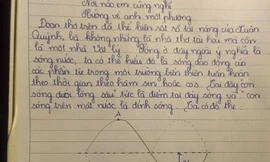 Nơi nào em cũng nghĩ
Hướng về anh một phương
Đoạn thơ trên đã thể hiện rất rõ tài năng của Xuân
Quỳnh, bà không những là nhà thơ tài hoa mà còn
là một nhà Vật lý. Sóng ở đây ngoài ý nghĩa là
sóng nước, ta có thể hiểu đó là sóng dao động của
các phần tử trong môi trường biến thiên tuần hoàn
theo thời gian theo hàm sin hoặc cos. Tại đây "con
sóng dưới lòng sâu" tức là điểm tại đáy sóng và "con
sóng trên mặt nước là đỉnh sóng. Ta có đồ thị:
A